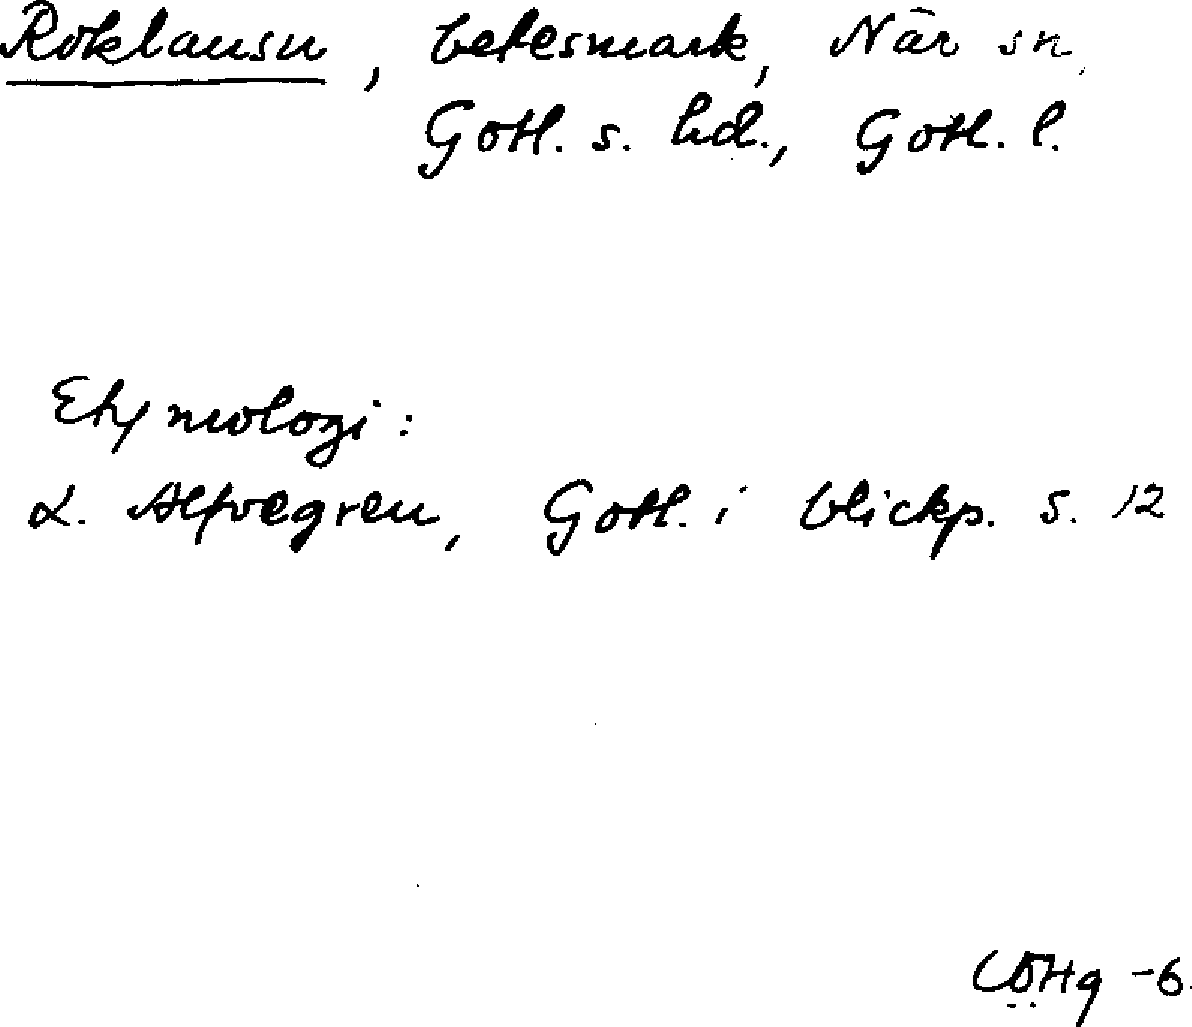 Roklausu, betesmark, När sn
Gotl. s. hd., Gotl. l.
Etymologi:
L. Alfvegren, Gotl. i blickp. s. 12